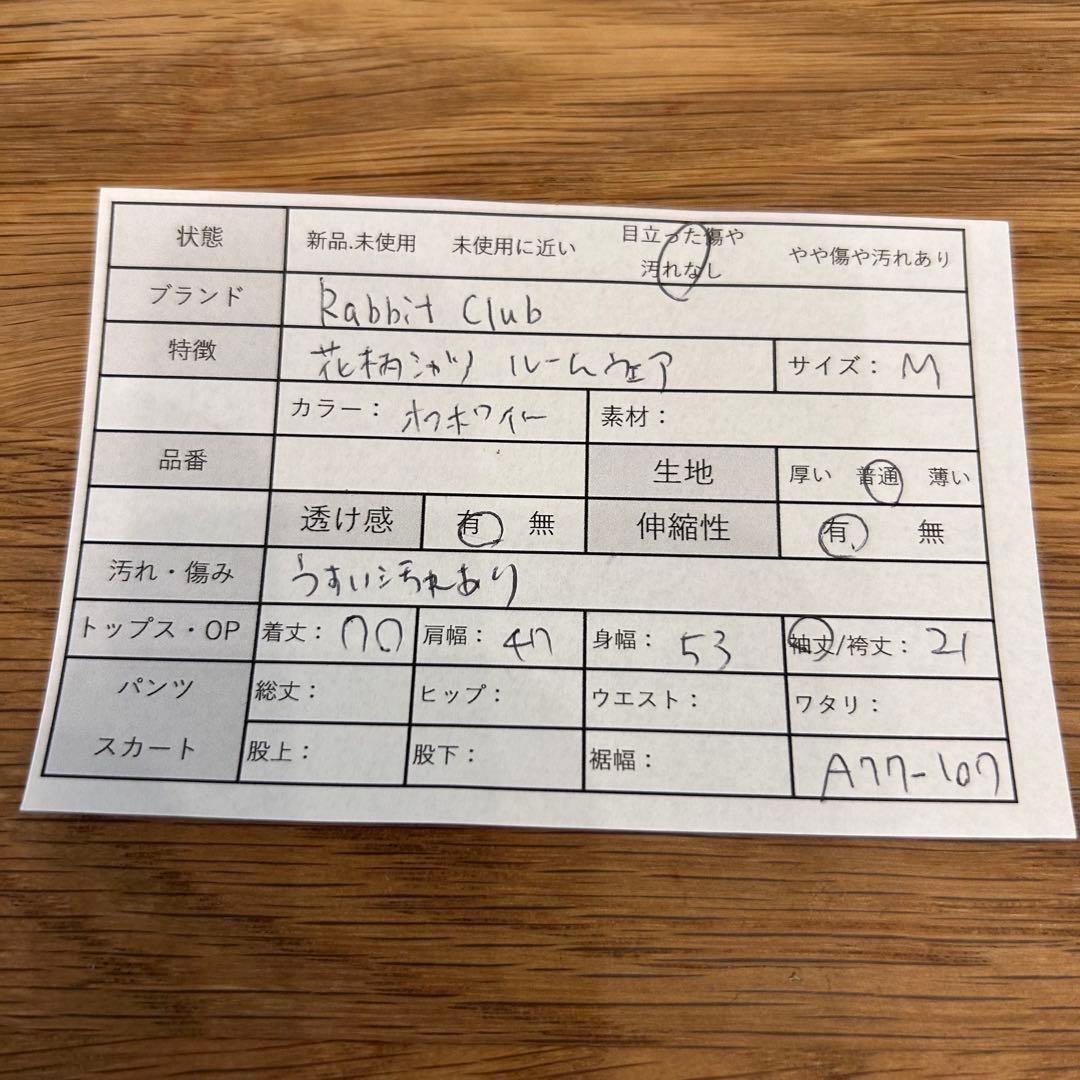 状態 新品.未使用 未使用に近い 目立った傷や汚れなし やや傷や汚れあり
ブランド Rabbit Club
特徴 花柄シャツ ルームウェア サイズ: M
カラー: オフホワイト 素材:
品番 生地 厚い 普通 薄い
透け感 有 無 伸縮性 有 無
汚れ・傷み うすい汚れあり
トップス・OP 着丈: 70 肩幅: 47 身幅: 53 袖丈/袴丈: 21
パンツ 総丈: ヒップ: ウエスト: ワタリ:
スカート 股上: 股下: 裾幅: A77-107